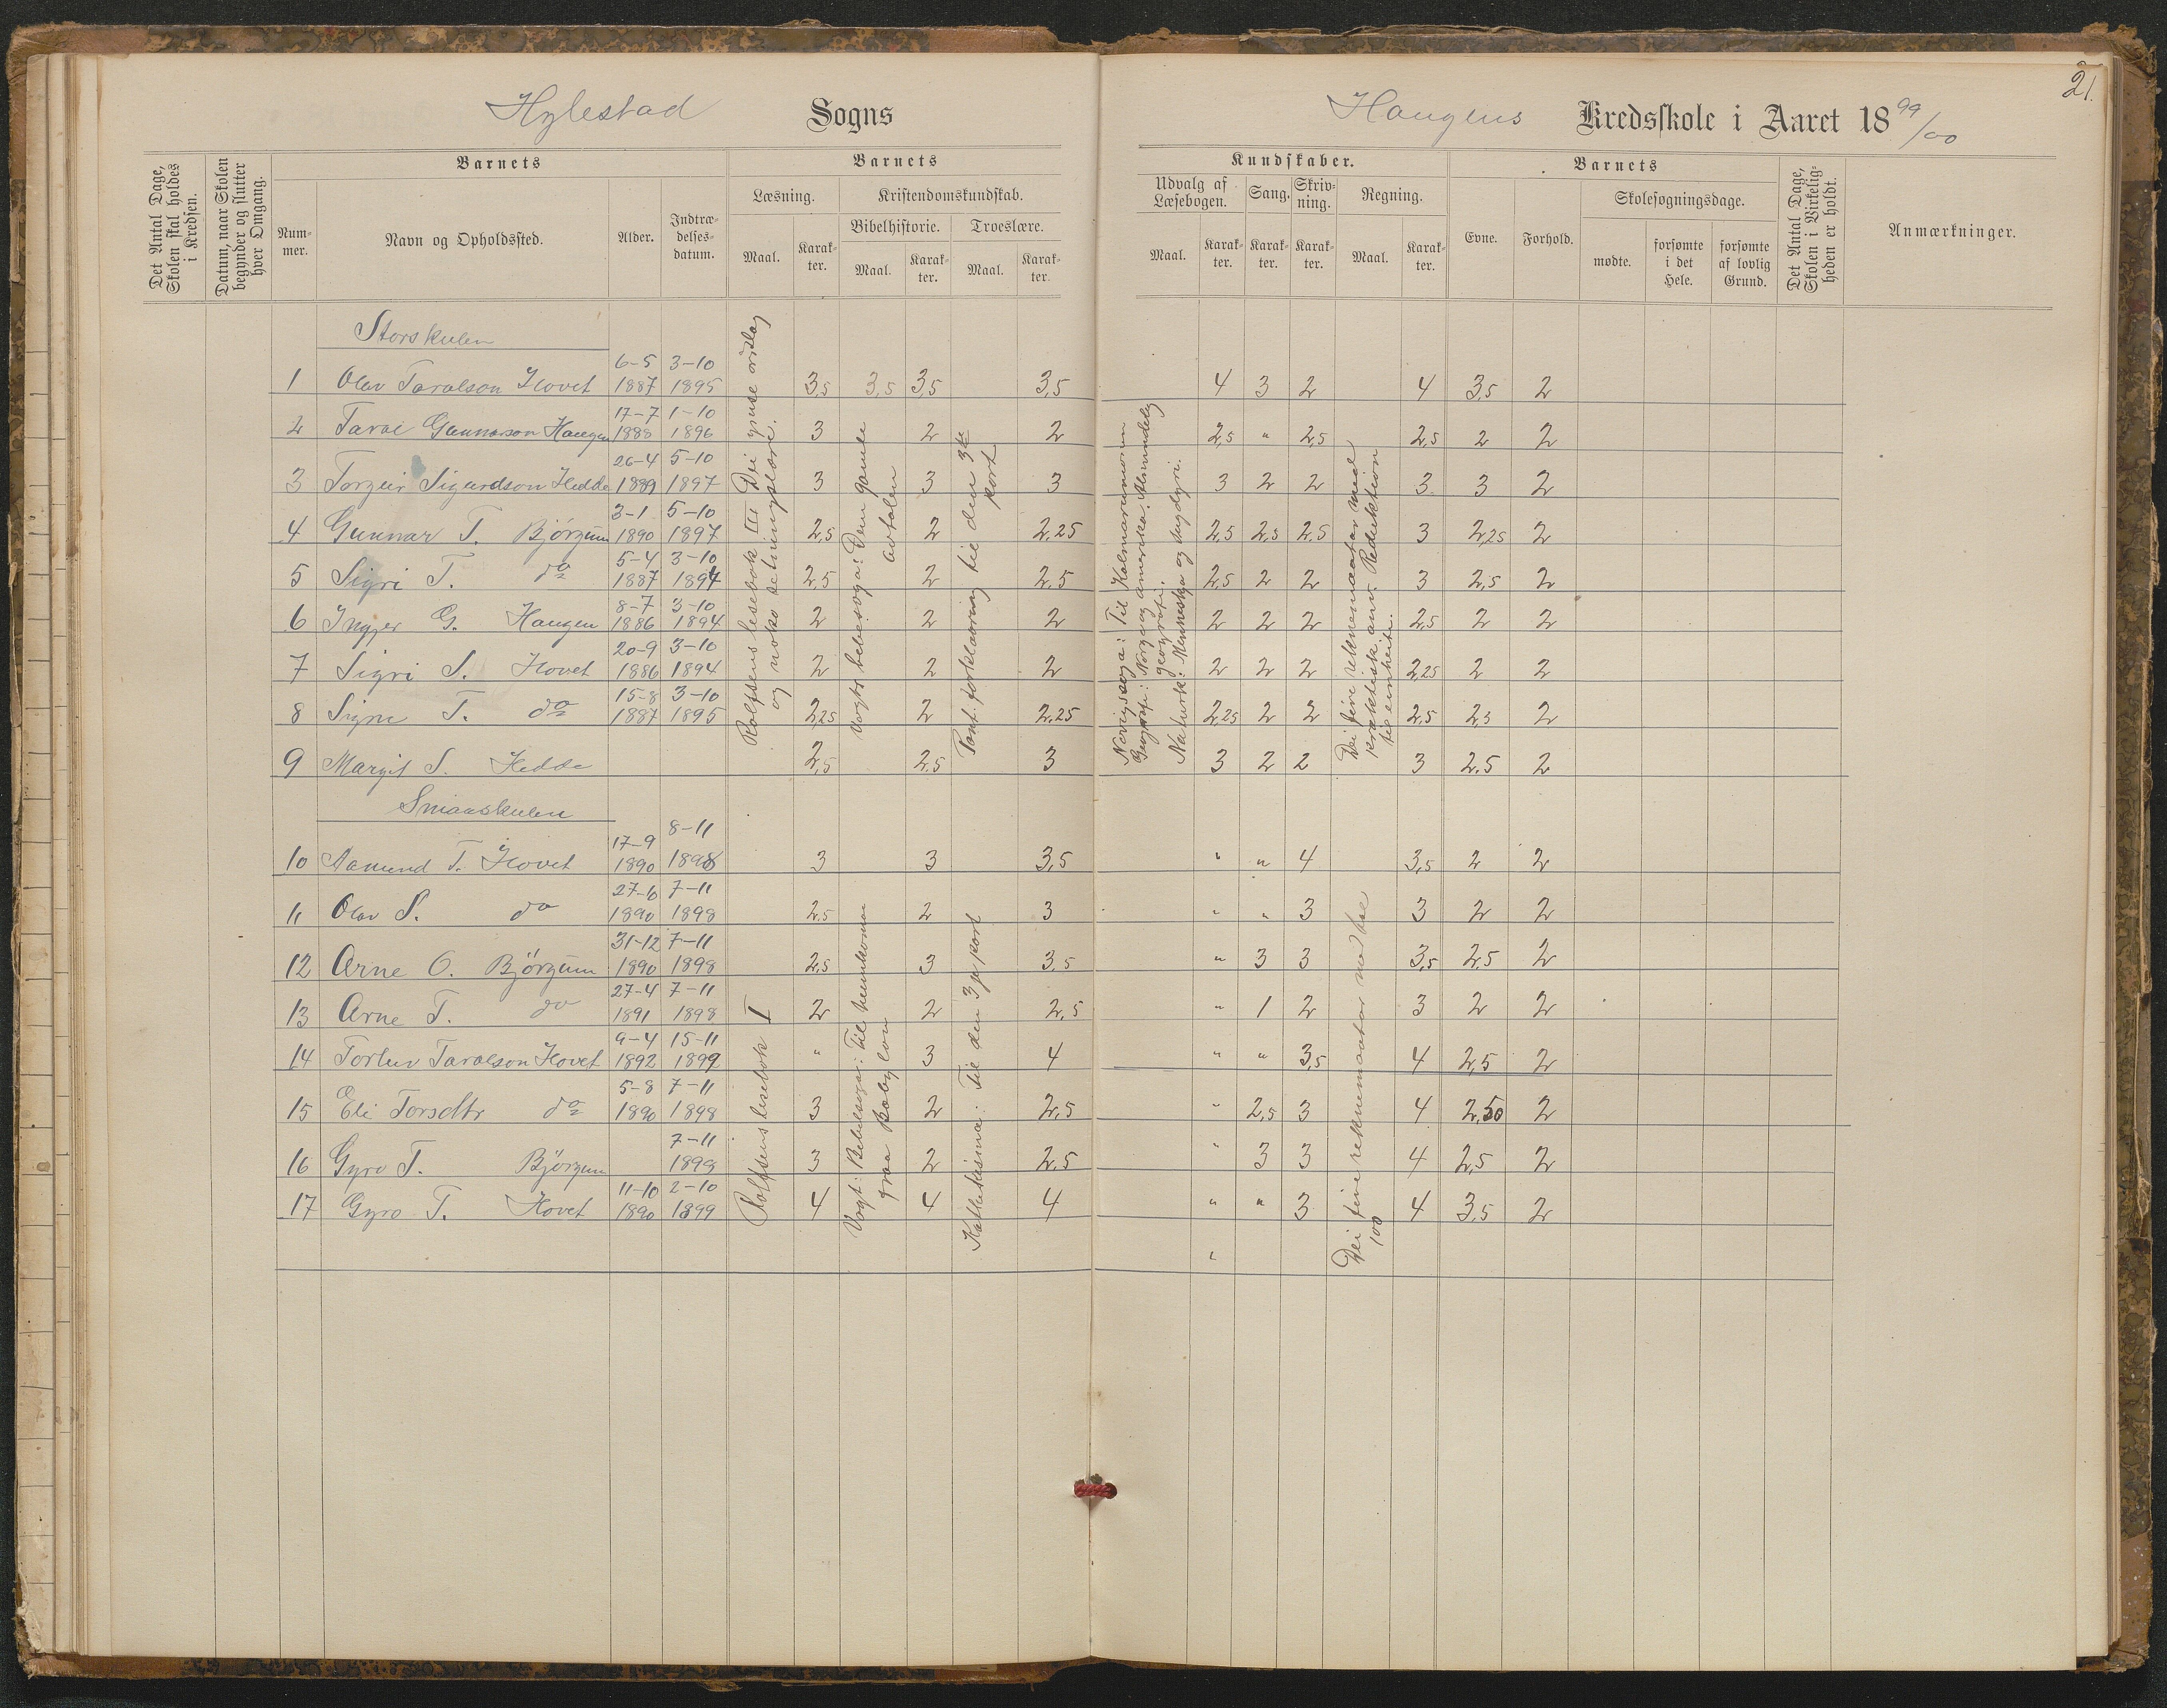 21.
Hylestad Sogns
Haugens Kredsskole i Aaret 1899/00
Det Antal Dage, Skolen skal holdes i Kredsen.
Datum, naar Skolen begynder og slutter hver Omgang.
Barnets
Nummer.
Navn og Opholdssted.
Alder.
Indtrædelsesdatum.
Barnets
Læsning.
Maal.
Karakter.
Kristendomskundskab.
Bibelhistorie.
Maal.
Karakter.
Troeslære.
Maal.
Karakter.
Kundskaber.
Udvalg af Læsebogen.
Maal.
Karakter.
Sang.
Karakter.
Skrivning.
Karakter.
Regning.
Maal.
Karakter.
Barnets
Evne.
Forhold.
Skolesøgningsdage.
mødte.
forsømte i det Hele.
forsømte af lovlig Grund.
Det Antal Dage, Skolen i Virkeligheden er holdt.
Anmærkninger.
Storskulen
1 Olav Taralson Hovet 6-5 1887 3-10 1895 3,5 3,5 3,5 3,5 4 3 2 4 3,5 2
2 Tarai Gunnarson Haugen 17-7 1888 1-10 1896 3 2 2 2,5 " 2,5 2,5 2 2
3 Torgeir Sigurdson Hedde 26-4 1889 5-10 1897 3 3 3 3 2 2 3 3 2
4 Gunnar T. Bjørgum 3-1 1890 5-10 1897 2,5 2 2,25 2,5 2,5 2,5 3 2,25 2
5 Sigri T. do 5-4 1887 3-10 1894 2,5 2 2,5 2,5 2 2 3 2,5 2
6 Ingjer G. Haugen 8-7 1886 3-10 1894 2 2 2 2 2 2 2,5 2 2
7 Sigri S. Hovet 20-9 1886 3-10 1894 2 2 2 2 2 2 2,25 2 2
8 Signe T. do 15-8 1887 3-10 1895 2,25 2 2,25 2,25 2 2 2,5 2,5 2
9 Margit S. Hedde 2,5 2,5 3 3 2 2 3 2,5 2
Rolfsens lesebok III Dei
og noko setningslære.
Vogts bebelsoga: Dem gamle
avtalen
forklaaring til den 3die
part
Til Kalmarunionen
Geografi: Norge og amerika. Almindeleg
geografi.
Naturk: Menneskja og
Dei fire reknemaatar med
praktisk anv. Reduktion
til einheiti.
Smaaskulen
10 Aamund T. Hovet 17-9 1890 8-11 1898 3 3 3,5 " " 4 3,5 2 2
11 Olav S. do 27-6 1890 7-11 1898 2,5 2 3 " " 3 3 2 2
12 Arne O. Bjørgum 31-12 1890 7-11 1898 2,5 3 3,5 " 3 3 3,5 2,5 2
13 Arne T. do 27-4 1891 7-11 1898 2 2 2,5 " 1 2 3 2 2
14 Torleiv Taralson Hovet 9-4 1892 15-11 1899 " 3 4 " " 3,5 4 2,5 2
15 Eli Torsdtr do 5-8 1890 7-11 1898 3 2 2,5 " 2,5 3 4 2,50 2
16 Gyro T. Bjørgum 7-11 1898 3 2 2,5 " 3 3 4 2,5 2
17 Gyro T. Hovet 11-10 1890 2-10 1899 4 4 4 " " 3 4 3,5 2
"
Rolfsens lesebok I
Vogt: Bebelsoga: Til heimkoma
fraa Babylon
Til den 3je part
Dei fire reknemaatar
100